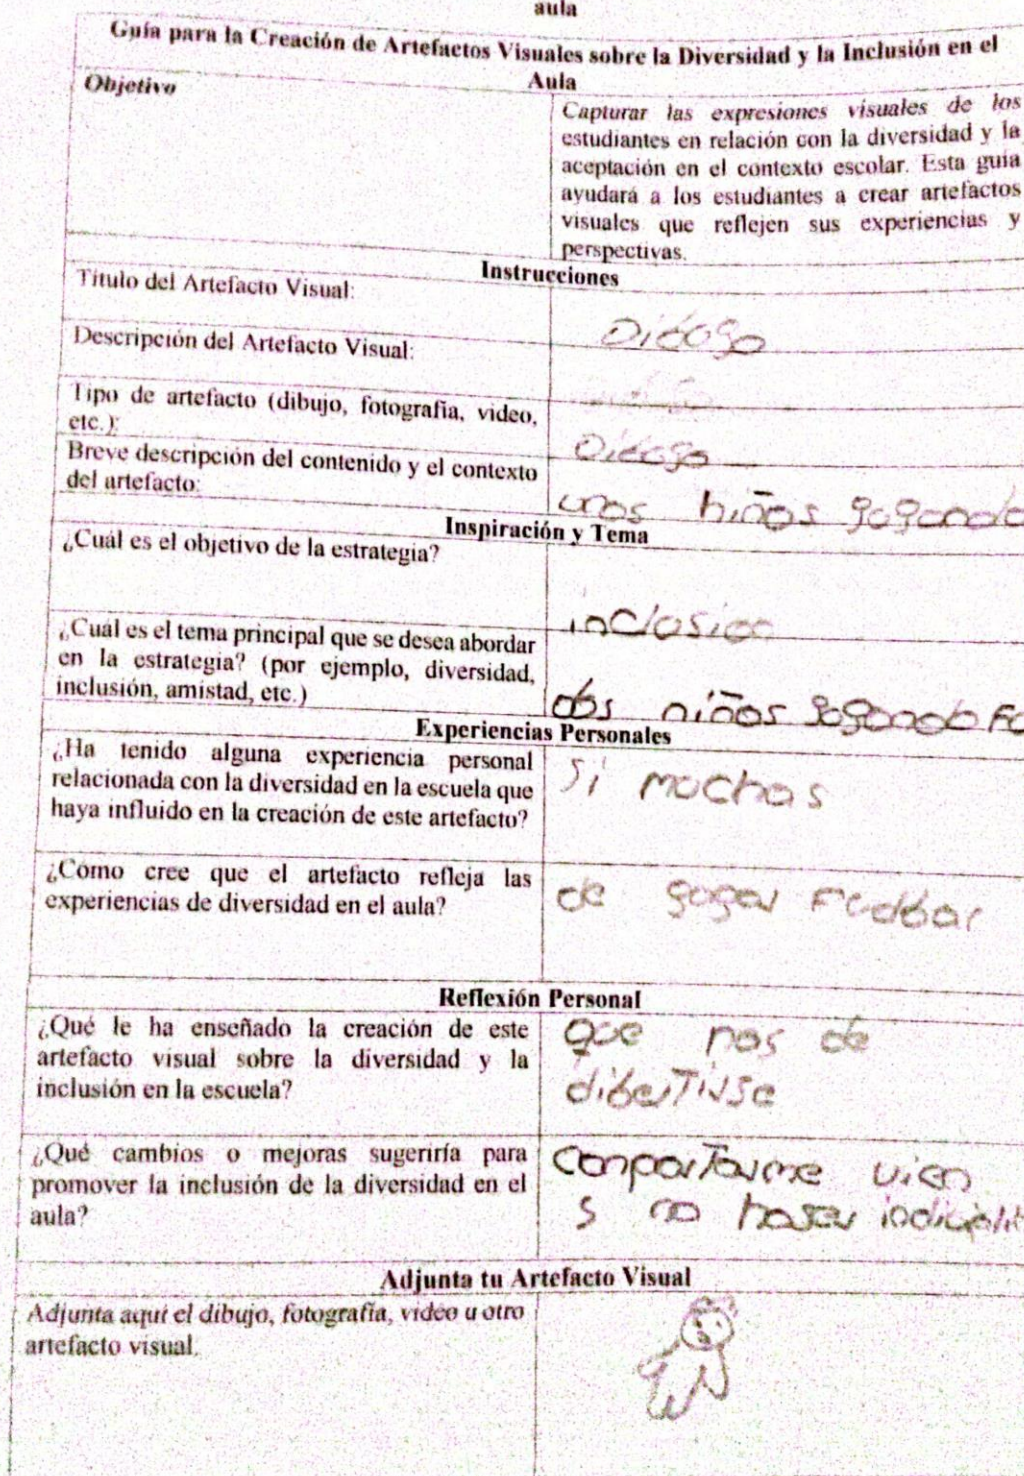 aula
Guía para la Creación de Artefactos Visuales sobre la Diversidad y la Inclusión en el
Aula
Objetivo
Capturar las expresiones visuales de los
estudiantes en relación con la diversidad y la
aceptación en el contexto escolar. Esta guía
ayudará a los estudiantes a crear artefactos
visuales que reflejen sus experiencias y
perspectivas.
Instrucciones
Título del Artefacto Visual:
Dibogo
Descripción del Artefacto Visual:
Tipo de artefacto (dibujo, fotografía, video,
etc.):
Breve descripción del contenido y el contexto
del artefacto:
unos niños gogando
Inspiración y Tema
¿Cuál es el objetivo de la estrategia?
inclusion
¿Cuál es el tema principal que se desea abordar
en la estrategia? (por ejemplo, diversidad,
inclusión, amistad, etc.)
dos niños gogando
Experiencias Personales
¿Ha tenido alguna experiencia personal
relacionada con la diversidad en la escuela que
haya influido en la creación de este artefacto?
Si muchas
¿Cómo cree que el artefacto refleja las
experiencias de diversidad en el aula?
de gogar Fudbar
Reflexión Personal
¿Qué le ha enseñado la creación de este
artefacto visual sobre la diversidad y la
inclusión en la escuela?
que nos de
dibertirse
¿Qué cambios o mejoras sugeriría para
promover la inclusión de la diversidad en el
aula?
Comportarme vien
no haser
Adjunta tu Artefacto Visual
Adjunta aquí el dibujo, fotografía, video u otro
artefacto visual.